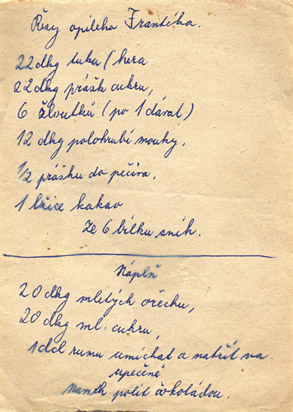 Řezy opilcha Františka.
22 dkg tuku (hera
22 dkg prášk cukru,
6 žloutků (po 1 dávat)
12 dkg polohrubí mouky,
1/2 prášku do pečiva,
1 lžíce kakao
Ze 6 bílku sníh.
Náplň
20 dkg mletých ořechu,
20 dkg ml. cukru,
1 dcl rumu umíchat a natřít na
upečené
navrch polít čokoládou.